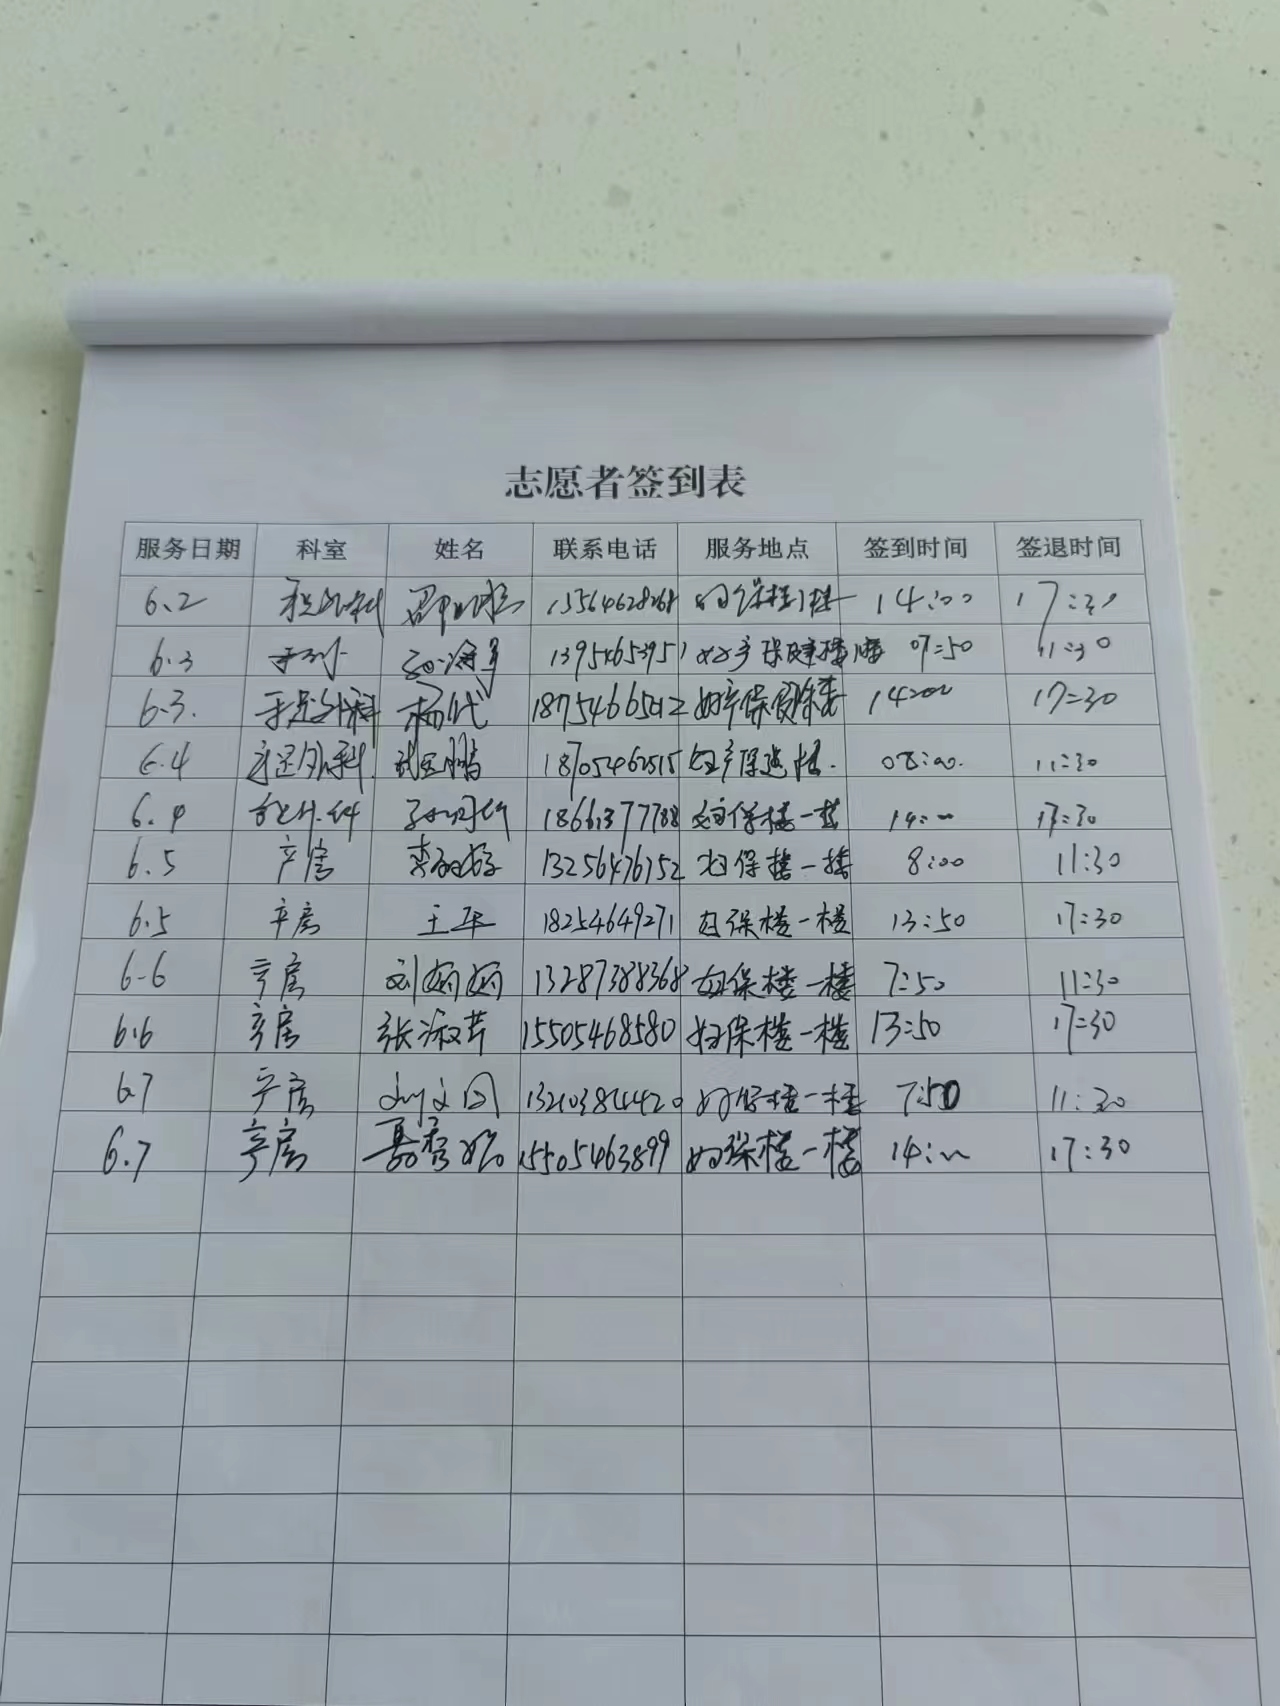 志愿者签到表
服务日期 科室 姓名 联系电话 服务地点 签到时间 签退时间
6.2 13564628268 14:00 17:30
6.3 13954653951 妇产保健楼 07:50 11:30
6.3. 手足外科 杨代 18754665012 妇产保健楼 14:00 17:30
6.4 手足外科. 18705462515 妇产保健楼. 08:00. 11:30
6.4 18661377788 妇保楼一楼 14:00 17:30
6.5 产房 13256476752 妇保楼一楼 8:00 11:30
6.5 产房 王平 18254649271 妇保楼一楼 13:50 17:30
6.6 产房 刘娟娟 13287388368 妇保楼一楼 7:50 11:30
6.6 产房 张淑芹 15505468580 妇保楼一楼 13:50 17:30
6.7 产房 13210384420 妇保楼一楼 7:50 11:30
6.7 产房 15505463899 妇保楼一楼 14:00 17:30